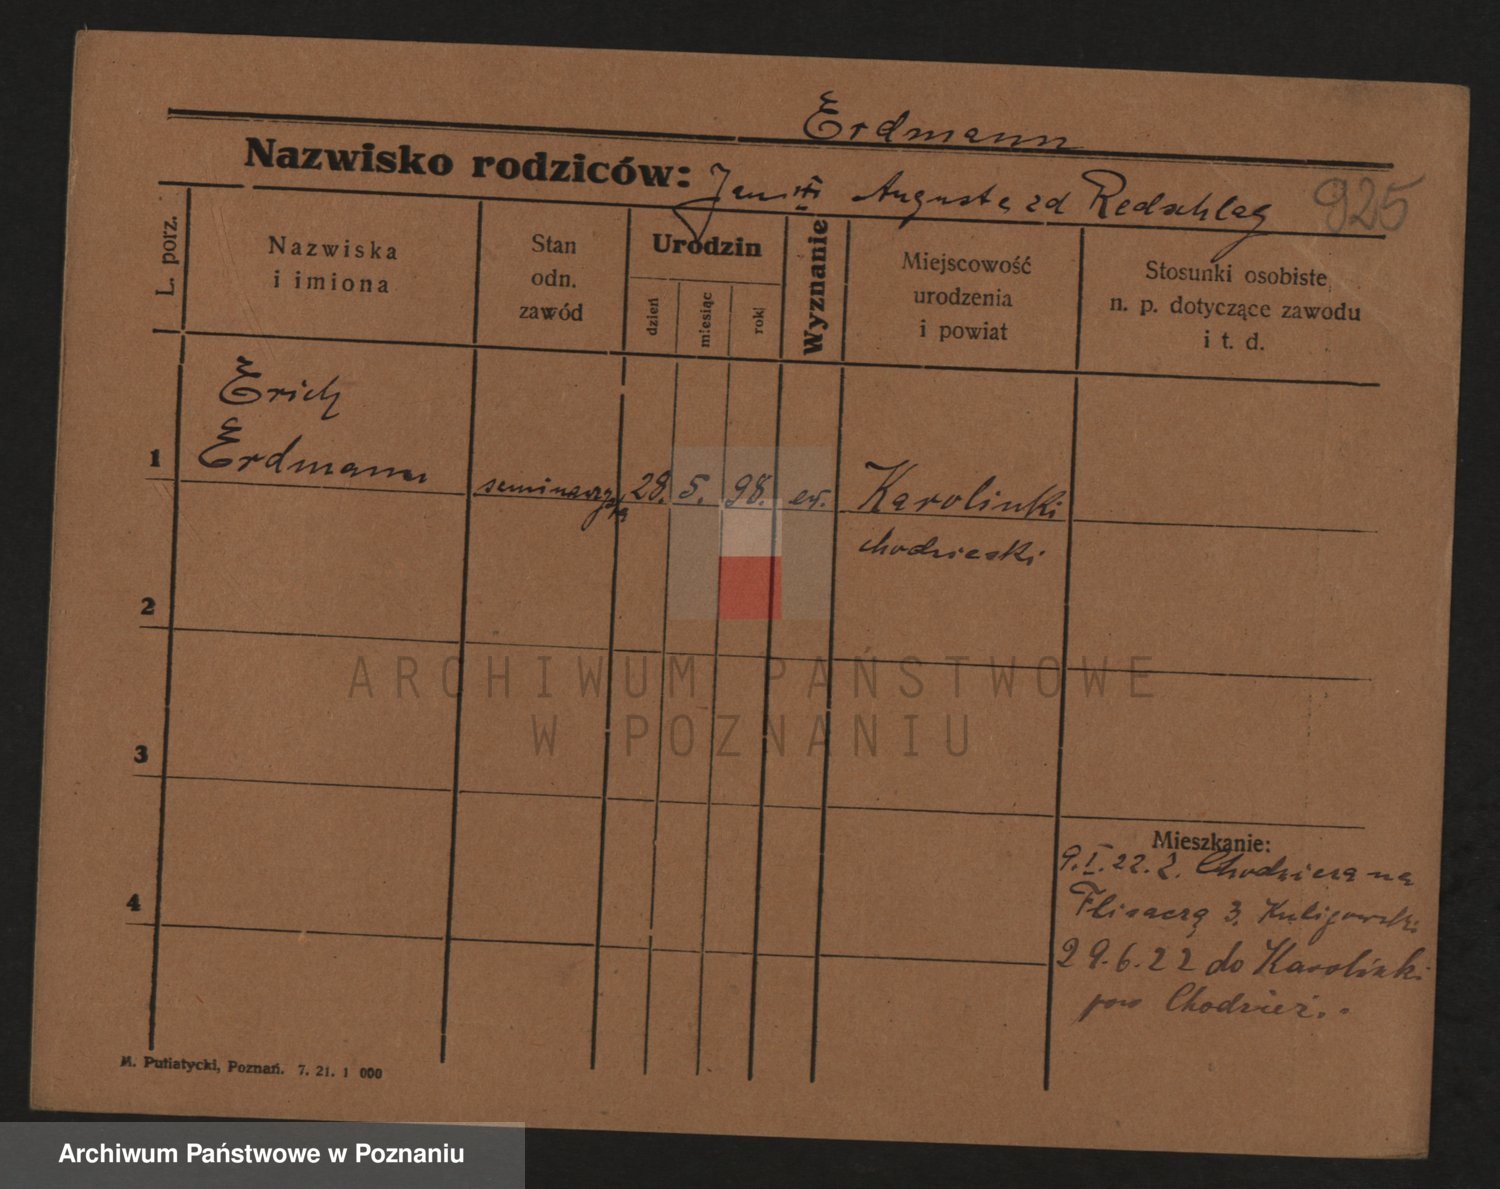 Erdmann
Nazwisko rodziców: Jan i Augusta zd Redschlag 925
L. porz.
Nazwiska
i imiona
Stan
odn.
zawód
Urodzin
dzień
miesiąc
rok
Wyznanie
Miejscowość
urodzenia
i powiat
Stosunki osobiste
n. p. dotyczące zawodu
i t. d.
Erich
1 Erdmann seminarzysta 28. 5. 98. ew. Karolinki
chodzieski
2
3
4
Mieszkanie:
9.I.22. z Chodzieża na
Flisaczą 3. Kuligowski
29.6.22 do Karolinki
pow Chodzież.
M. Putiatycki, Poznań. 7. 21. 1 000
ARCHIWUM PAŃSTWOWE
W POZNANIU
Archiwum Państwowe w Poznaniu